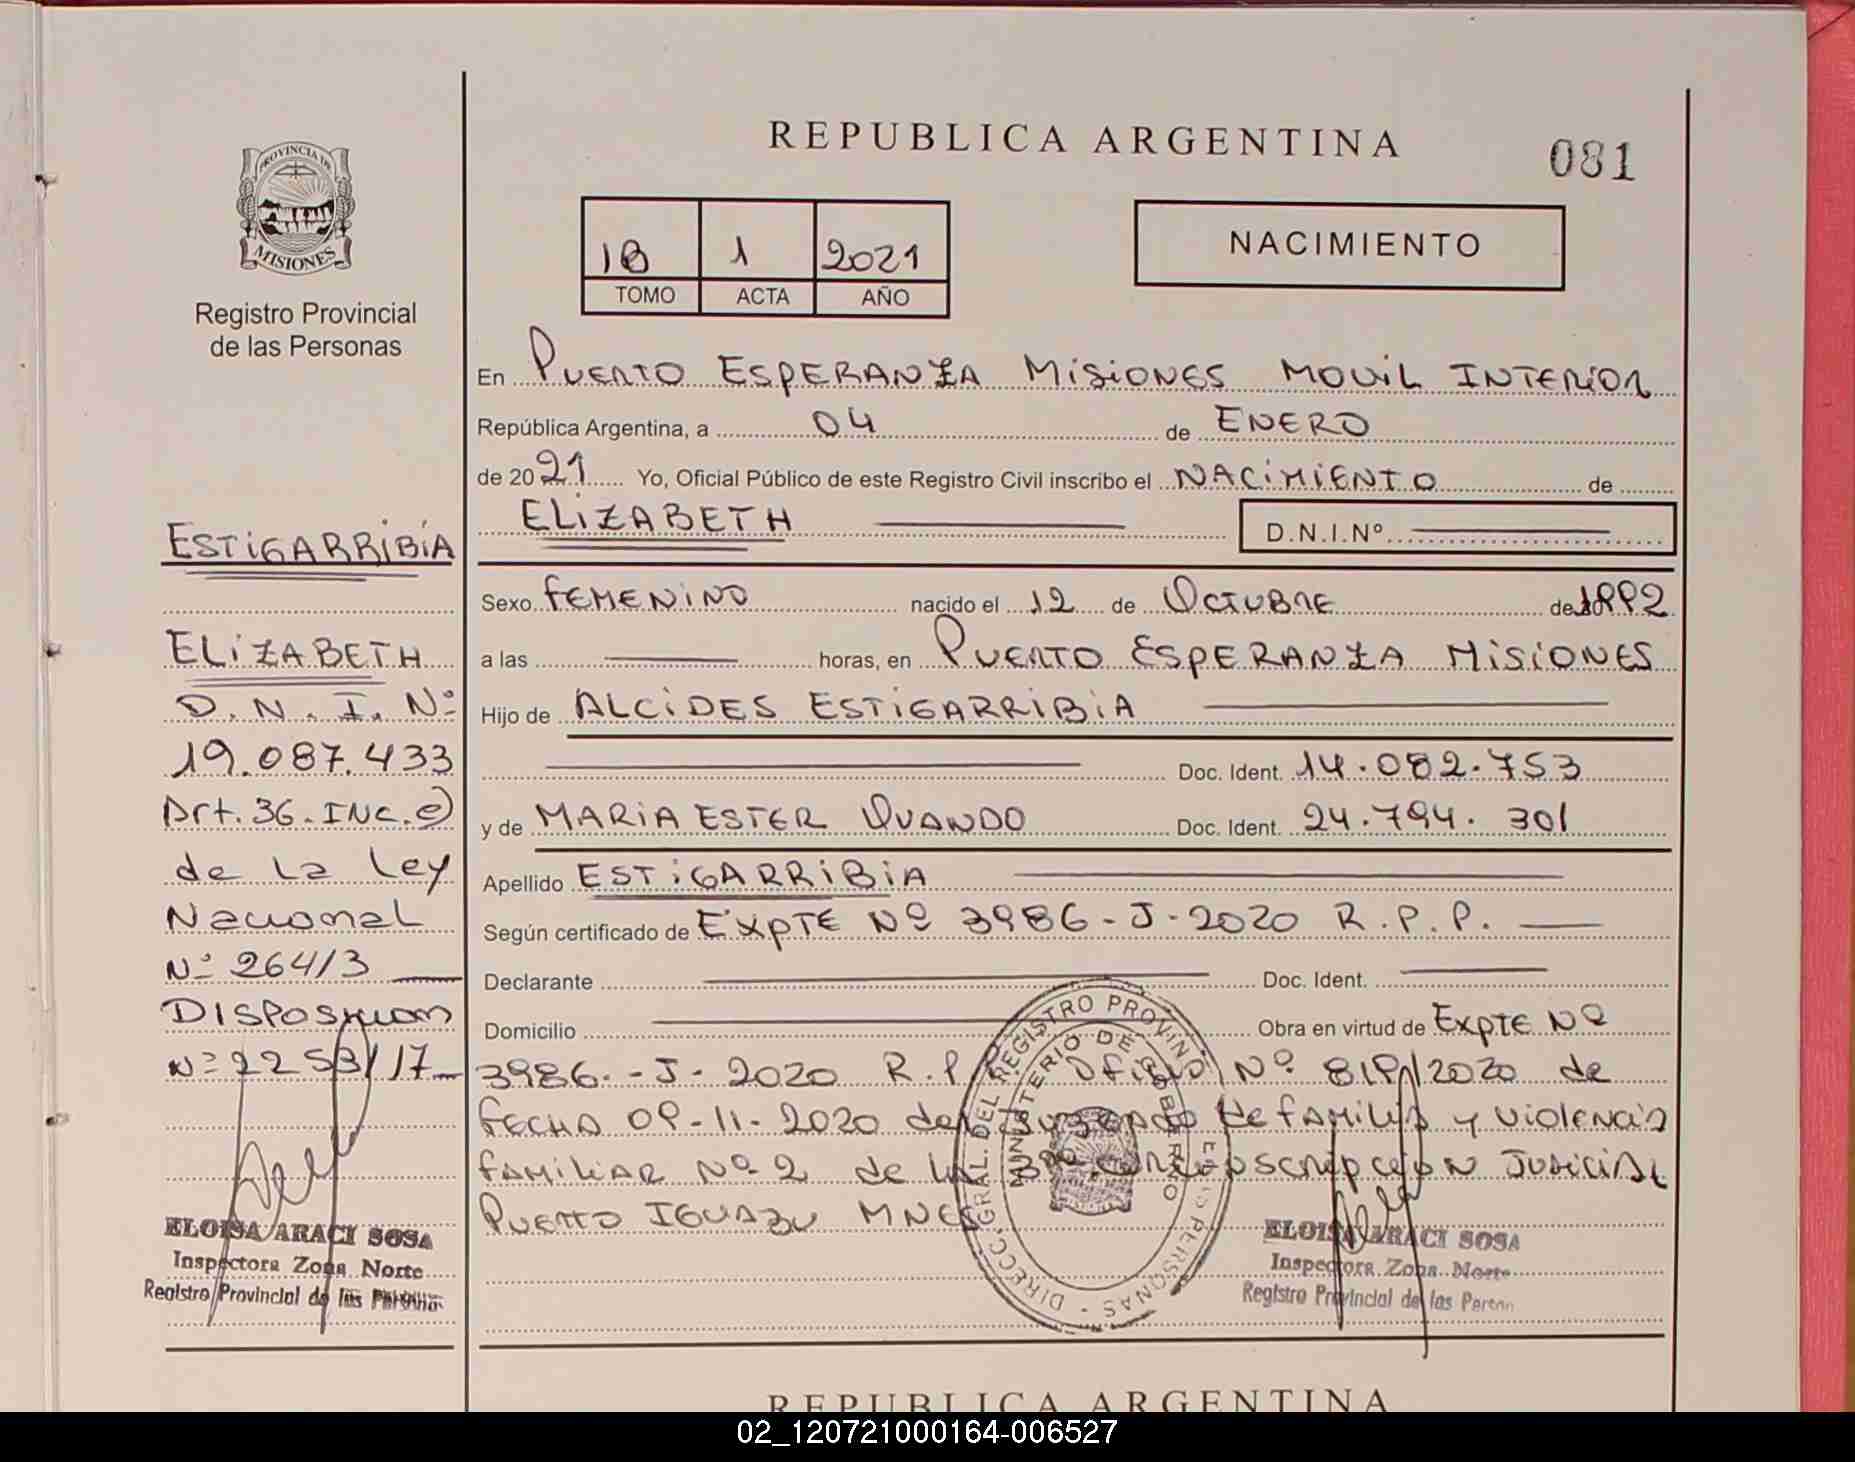 REPUBLICA ARGENTINA
081
PROVINCIA DE
MISIONES
Registro Provincial
de las Personas
1B 1 2021
TOMO ACTA AÑO
NACIMIENTO
En PUERTO ESPERANZA MISIONES MOVIL INTERIOR
República Argentina, a 04 de ENERO
de 2021 Yo, Oficial Público de este Registro Civil inscribo el NACIMIENTO de
ELIZABETH D.N.I.Nº
Sexo FEMENINO nacido el 12 de OCTUBRE de 1992
a las horas, en PUERTO ESPERANZA MISIONES
Hijo de ALCIDES ESTIGARRIBIA
Doc. Ident. 14.082.753
y de MARIA ESTER OVANDO Doc. Ident. 24.794.301
Apellido ESTIGARRIBIA
Según certificado de EXPTE Nº 3986-J-2020 R.P.P.
Declarante Doc. Ident.
Domicilio Obra en virtud de EXPTE Nº
3986.-J-2020 R.P. OFICIO Nº 819/2020 de
FECHA 09-11-2020 del JUZGADO de FAMILIA y VIOLENCIA
FAMILIAR Nº 2 de la 3ra CIRCUNSCRIPCION JUDICIAL
PUERTO IGUAZU MNES
ESTIGARRIBIA
ELIZABETH
D.N.I. Nº
19.087.433
Art. 36. INC. e)
de La Ley
Nacional
Nº 264/3
DISPOSICION
Nº 2253/17
ELOISA ARACI SOSA
Inspectora Zona Norte
Registro Provincial de las Personas
DIRECC. GRAL. DEL REGISTRO PROVINCIAL DE LAS PERSONAS
MINISTERIO DE GOBIERNO
ELOISA ARACI SOSA
Inspectora Zona Norte
Registro Provincial de las Person
REPUBLICA ARGENTINA
02_120721000164-006527